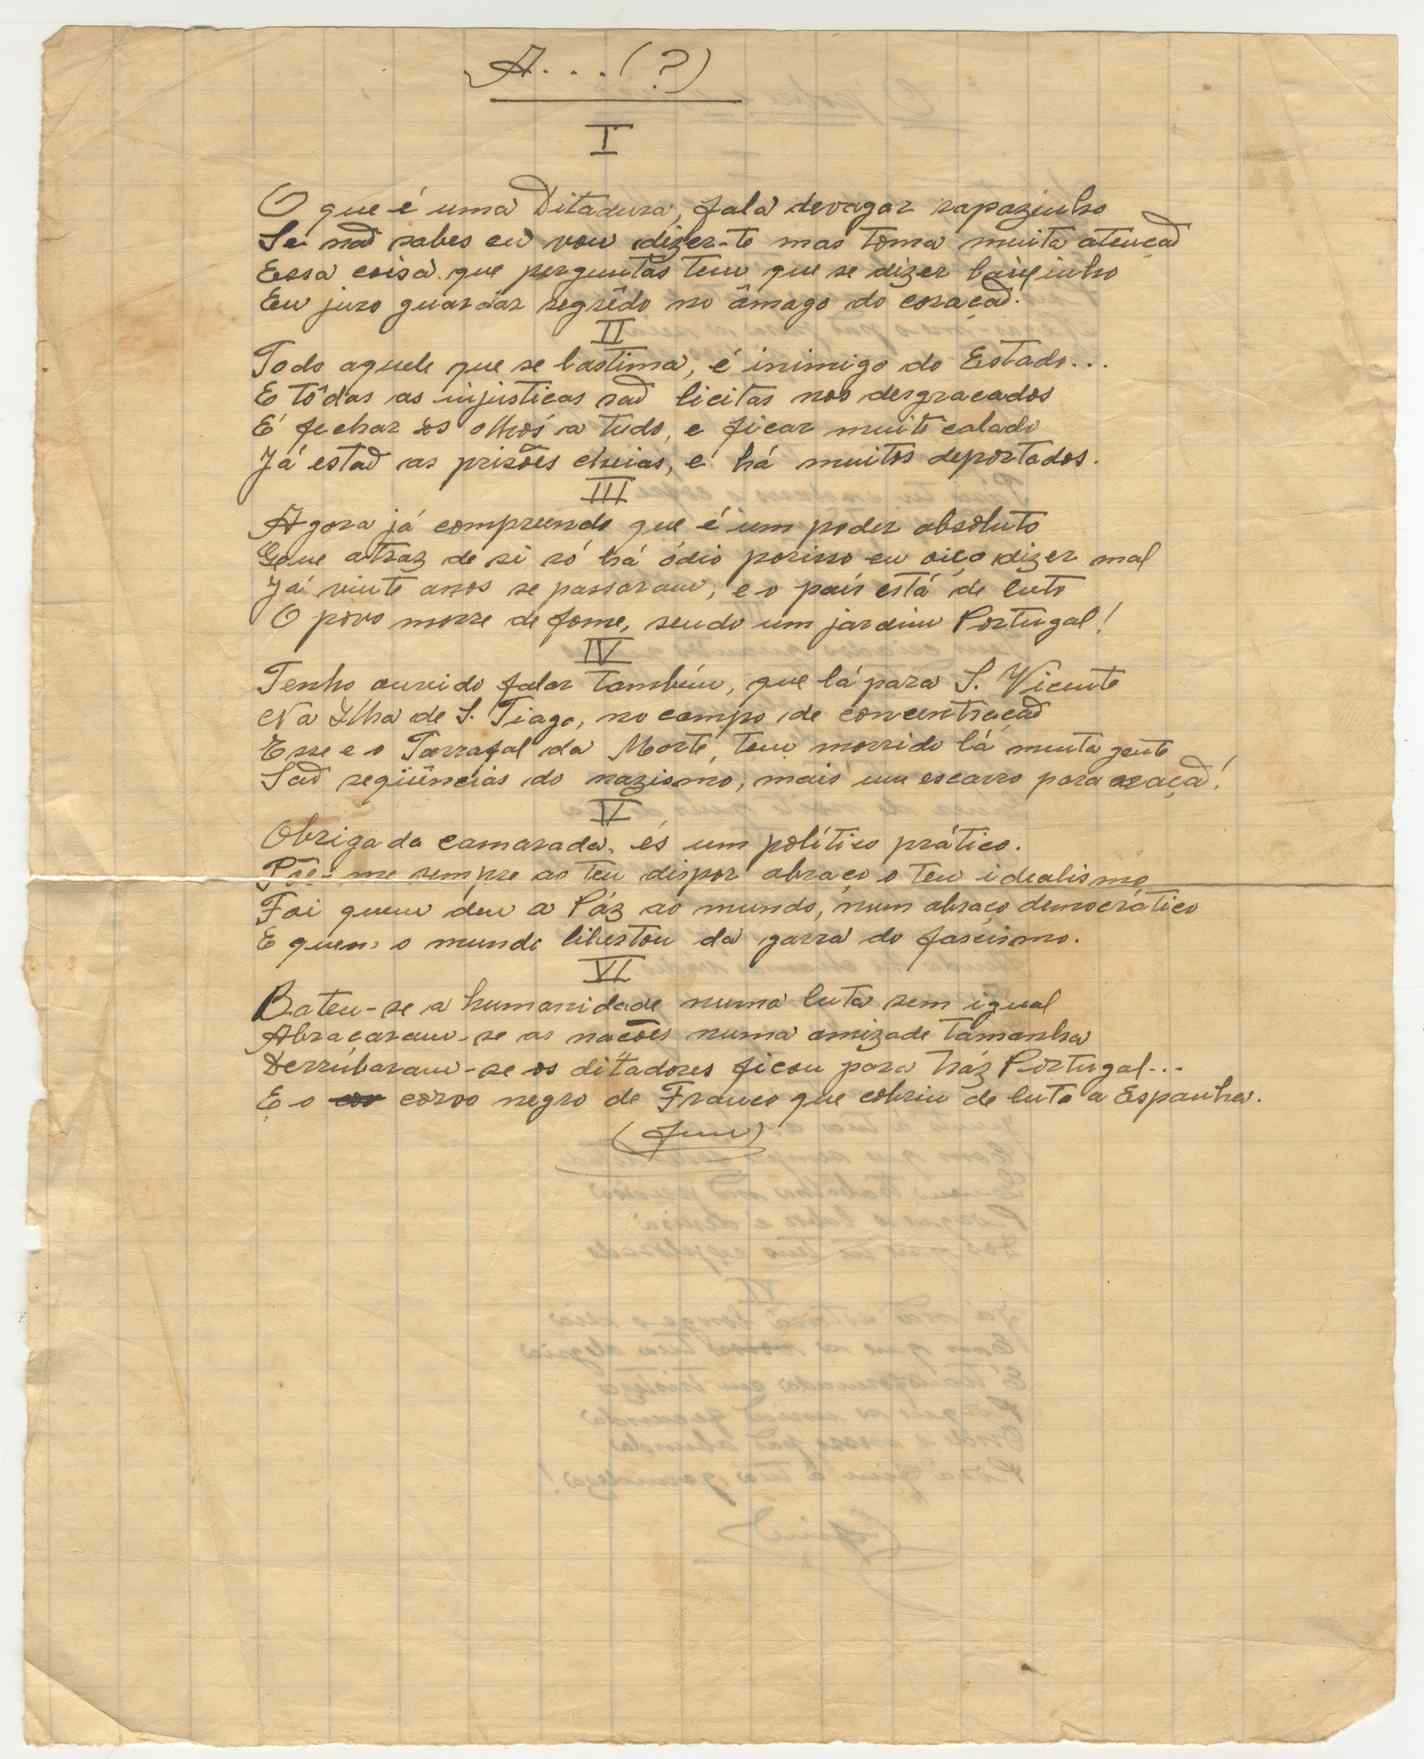 A . . . (?)
I
O que é uma Ditadura, fala devagar rapazinho
Se não sabes eu vou dizer-te mas toma muita atenção
Essa coisa que perguntas tem que se dizer baixinho
Eu juro guardar segrêdo no âmago do coração.
II
Todo aquele que se lastima, é inimigo do Estado...
E tôdas as injusticas são licitas nos desgracados
É fechar os olhos a tudo, e ficar muito calado
Já estão as prisões cheias, e há muitos deportados.
III
Agora já compreendo que é um poder absoluto
Que atraz de si só há ódio porisso eu oiço dizer mal
Já vinte anos se passaram, e o país está de luto
O povo morre de fome, sendo um jardim Portugal!
IV
Tenho ouvido falar também, que lá para S. Vicente
Na Ilha de S. Tiago, no campo de concentração
Esse e o Tarrafal da Morte, tem morrido lá muita gente
São seqüências do nazismo, mais um escarro para a ração!
V
Obrigada camarada, és um político prático.
Põe-me sempre ao teu dispor abraço o teu idealismo
Foi quem deu a Páz ao mundo, num abraço democrático
E quem o mundo libertou da garra do fascismo.
VI
Bateu-se a humanidade numa luta sem igual
Abracaram-se as nacões numa amizade tamanha
Derrúbaram-se os ditadores ficou para tráz Portugal...
E o corvo negro de Franco que cobriu de luto a Espanha.
(fim)